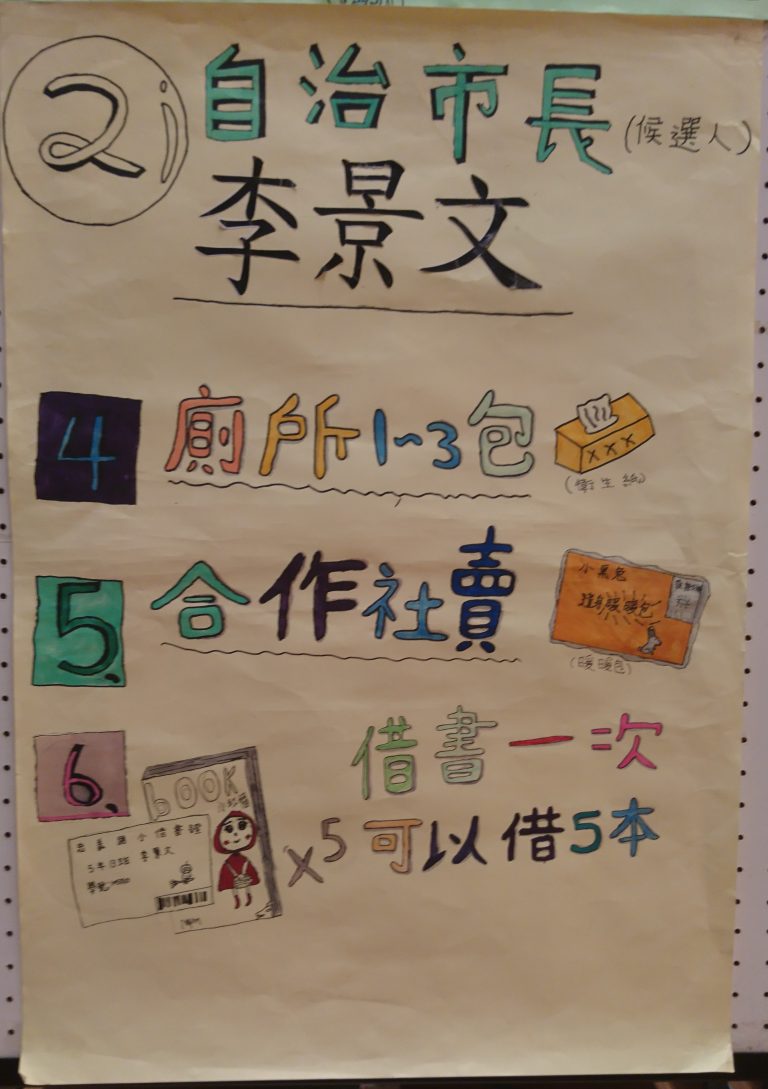 2i 自治市長(候選人)
李景文
4 廁所1~3包
xxx
(衛生紙)
5. 合作社賣
小黑兔
暖暖包
(暖暖包)
6. 借書一次
BOOK
小紅帽
x5 可以借5本
忠義國小借書證
5年 班 李景文
學號